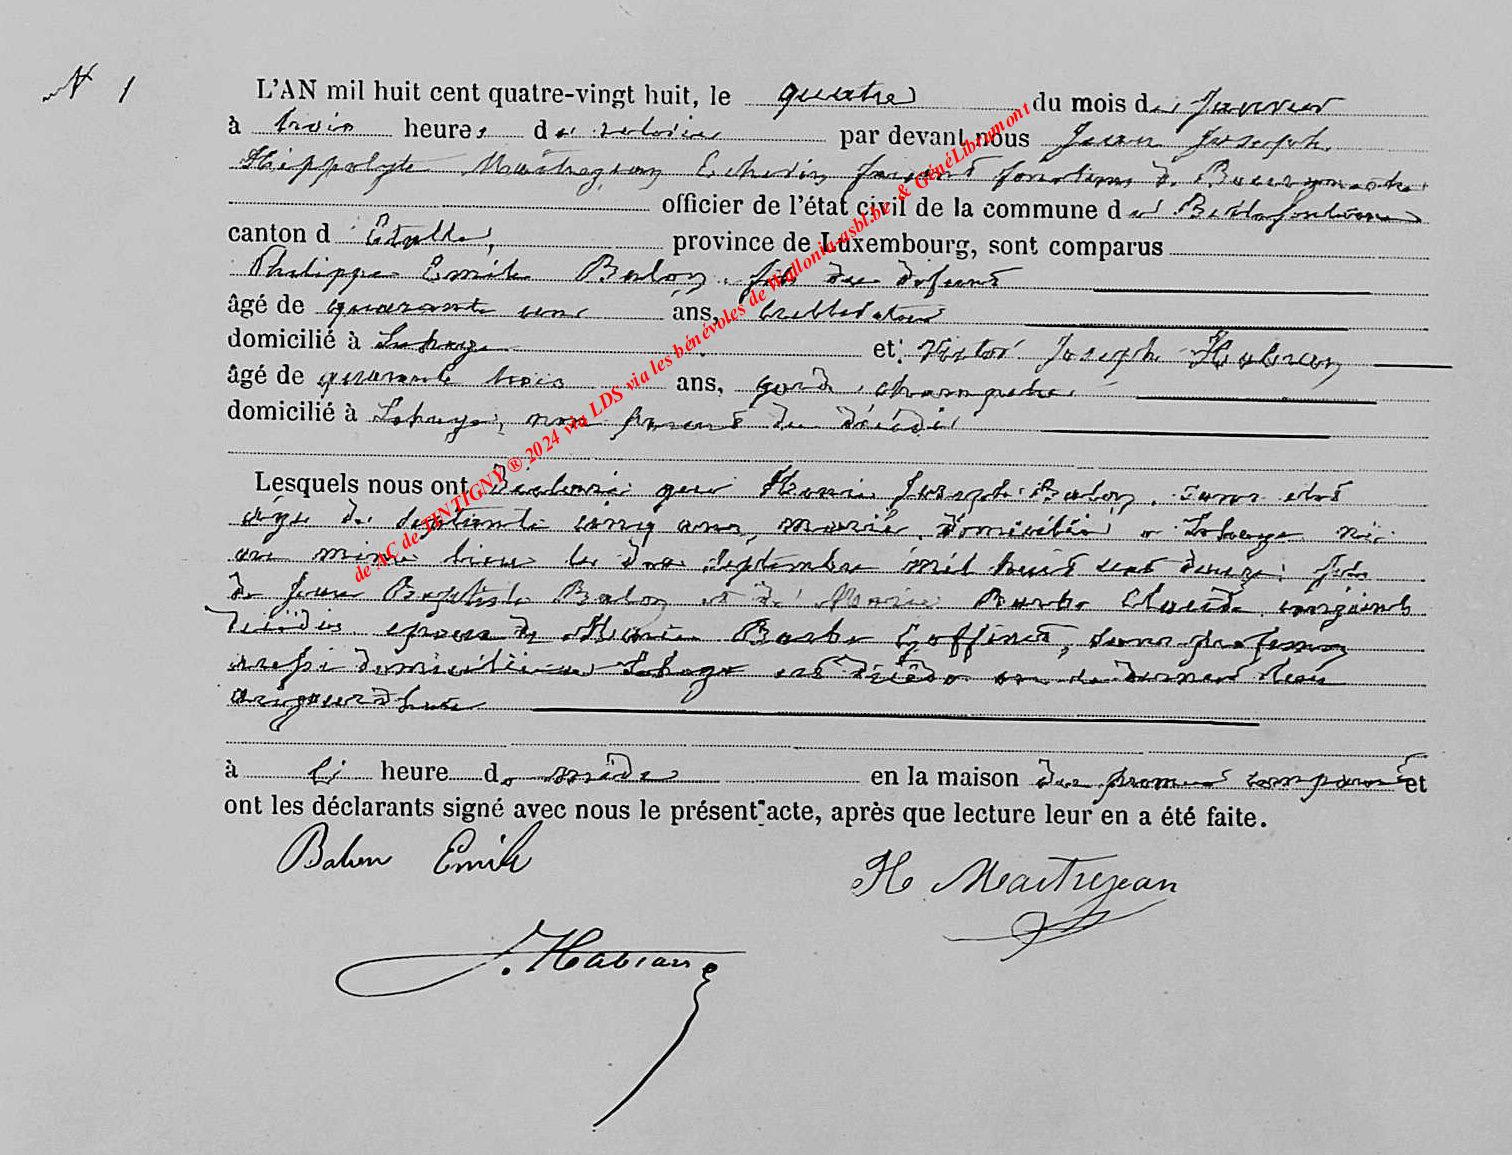 N 1
L'AN mil huit cent quatre-vingt huit, le quatre du mois de Janvier
à trois heures de relevée par devant nous Jean Joseph
Hippolyte Maitrejean Echevin faisant fonctions de Bourgmestre
officier de l'état civil de la commune de Bellefontaine
canton d'Etalle, province de Luxembourg, sont comparus
Philippe Emile Balon, fils du défunt
âgé de quarante un ans, cultivateur
domicilié à Lahage et Victor Joseph Habran
âgé de quarante trois ans, garde champêtre
domicilié à Lahage, non parent du décédé
Lesquels nous ont Déclaré que Henri Joseph Balon, sans état
âgé de septante cinq ans, marié, domicilié à Lahage né
au même lieu le dix septembre mil huit cent douze, fils
de Jean Baptiste Balon et de Marie Barbe Claude conjoints
décédés époux de Marie Barbe Goffinet, sans profession
aussi domiciliée à Lahage est décédé en sa demeure
aujourd'hui
à heure de midi en la maison du premier comparant et
ont les déclarants signé avec nous le présent acte, après que lecture leur en a été faite.
Balon Emile
H Maitrejean
J. Habran
de AC de TINTIGNY ® 2024 via LDS via les bénévoles de Wallonia-asbl.be & GénéLibramont